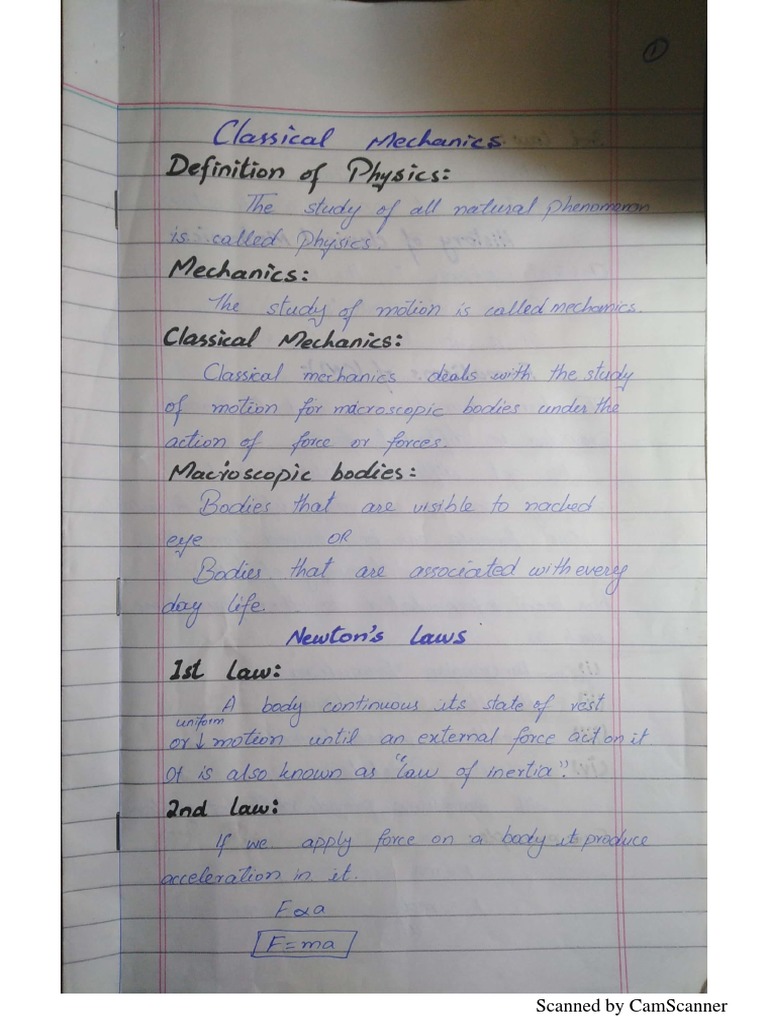 1
Classical Mechanics
Definition of Physics:
The study of all natural phenomenon
is called Physics.
Mechanics:
The study of motion is called mechanics.
Classical Mechanics:
Classical mechanics deals with the study
of motion for macroscopic bodies under the
action of force or forces.
Macroscopic bodies:
Bodies that are visible to nacked
eye OR
Bodies that are associated with every
day life.
Newton's Laws
1st Law:
A body continuous its state of rest
uniform
or ↓ motion until an external force act on it
It is also known as "law of inertia".
2nd Law:
If we apply force on a body it produce
acceleration in it.
F∝a
F=ma
Scanned by CamScanner